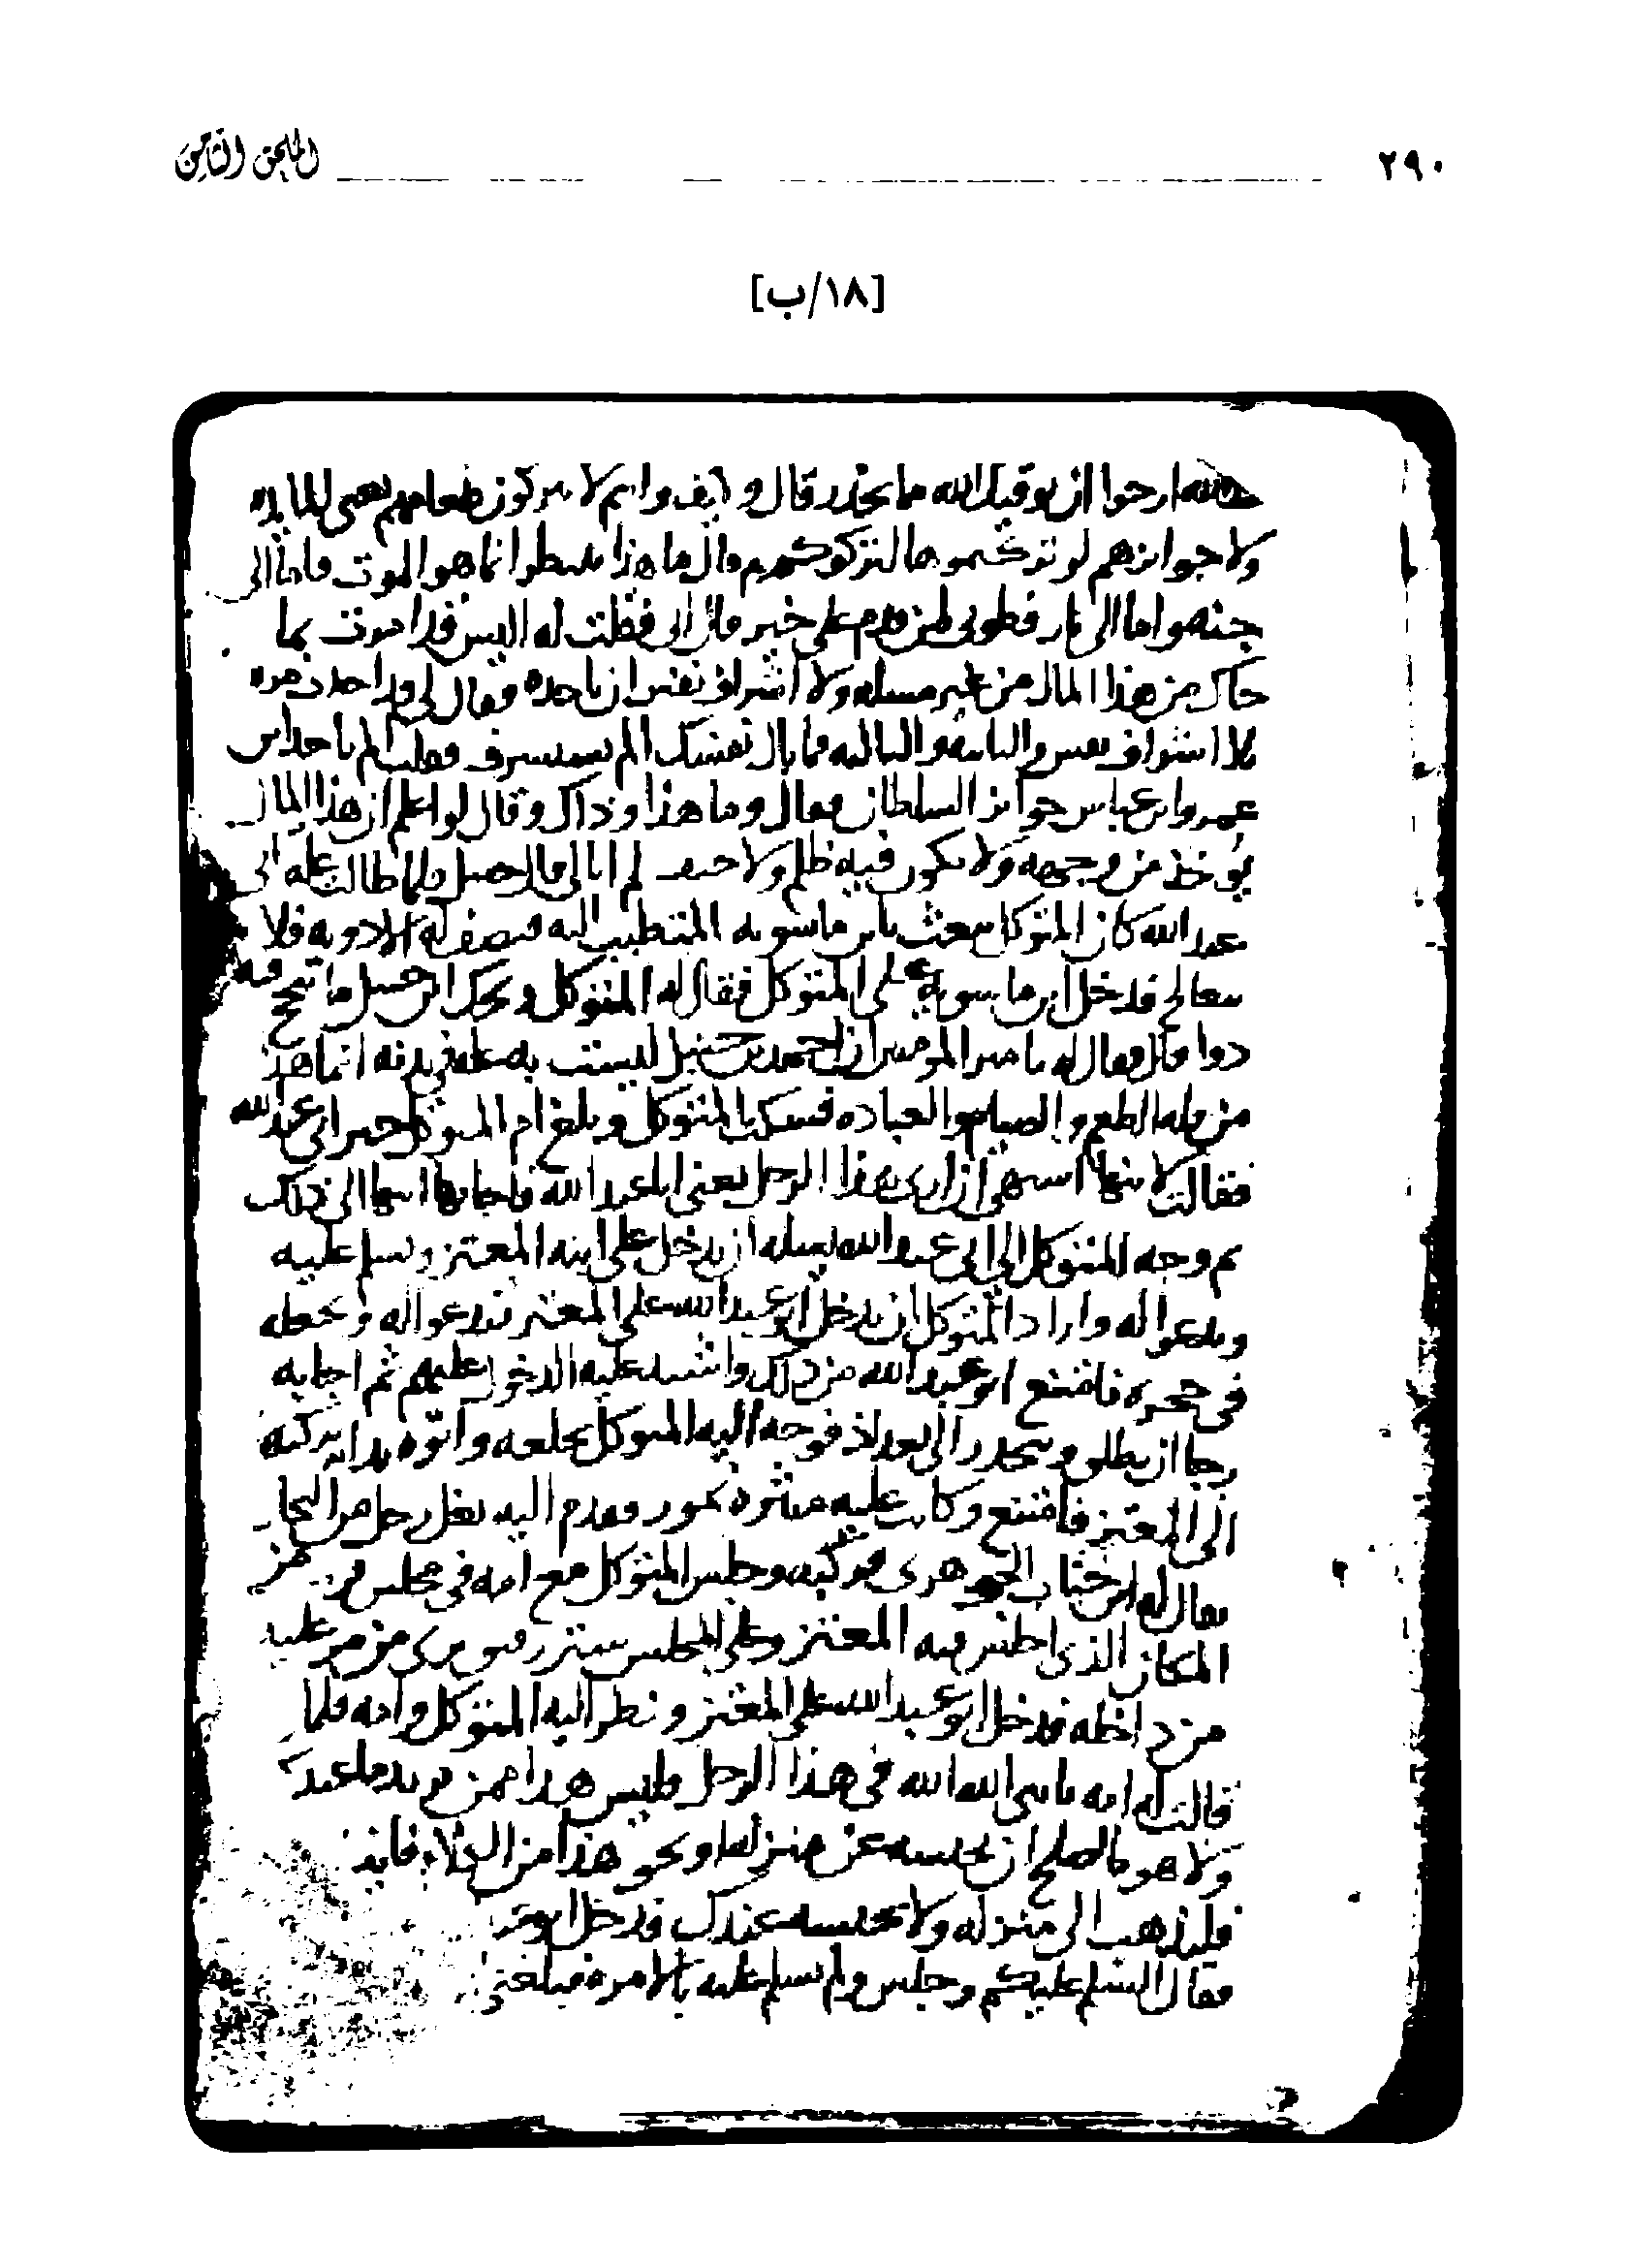 ٢٩٠
الملحق الثامن
[١٨/ب]
ارجوا ان يوقيك الله مما يحذر قال وكيف وانتم لا تتركون طعامهم يعنى المايده
ولا جوايزهم لو تركتموها لتركوكم قال ما هذا ننتظر انما هو الموت فاما الى
جنه واما الى نار فطوبى لمن قدم على خير قال ابى فقلت له اليس قد امرت بما
جاك من هذا المال من غير مسله ولا اشراف نفس ان تاخذه فقال لى قد اخذت مره
بلا اشراف نفس والثانيه والثالثه فما بال نفسك الم تستشرف فقلت الم ياخذ ابن
عمر وابن عباس جوايز السلطان فقال وما هذا وذاك وقال لو اعلم ان هذا المال
يوخذ من وجهه ولا يكون فيه ظلم ولا حيف لم ابالى قال فلما طالت عله ابى
عبد الله كان المتوكل يبعث بابن ماسويه المتطبب اليه فيصف له الادويه فلا
يتعالج فدخل ابن ماسويه على المتوكل فقال له المتوكل ويحك ابن حنبل ما نجح فيه
دوا فقال له يا امير المومنين ان احمد بن حنبل ليست به عله فى بدنه انما هذا
من قله الطعم والصيام والعباده فسكت المتوكل وبلغ ام المتوكل خبر ابى عبد الله
فقالت لابنها اشتهى ان ارى هذا الرجل يعنى ابا عبد الله فاجابها ابنها الى ذلك
ثم وجه المتوكل الى ابى عبد الله يسله ان يدخل على ابنه المعتز ويسلم عليه
ويدعوا له واراد المتوكل ان يدخل ابو عبد الله على المعتز فيدعوا له ويجعله
فى حجره فامتنع ابو عبد الله من ذلك واشتد عليه الدخول عليهم ثم اجابه
رجا ان يطلق وينحدر الى بغداد فوجه اليه المتوكل بخلعه واتوه بدابه يركبه
الى المعتز فامتنع وكانت عليه ميثره نمور وقدم اليه بغل رجل من التجار
يقال له ابن خباب الجوهرى فركبه وجلس المتوكل مع امه فى مجلس من
المكان الذى اجلس فيه المعتز وعلى المجلس ستر رقيق يرى من مر عليه
من داخله فدخل ابو عبد الله على المعتز ونظر اليه المتوكل وامه فلما
قالت له امه يا بنى الله الله فى هذا الرجل فليس هذا ممن يريد ما عندك
ولا هو فالصلح ان تحبسه عن منزله ونحو هذا من الكلام فايذن
فليذهب الى منزله ولا تحبسه عندك فدخل ابو
فقال السلم عليكم وجلس ولم يسلم عليه بالامره فبلغنى